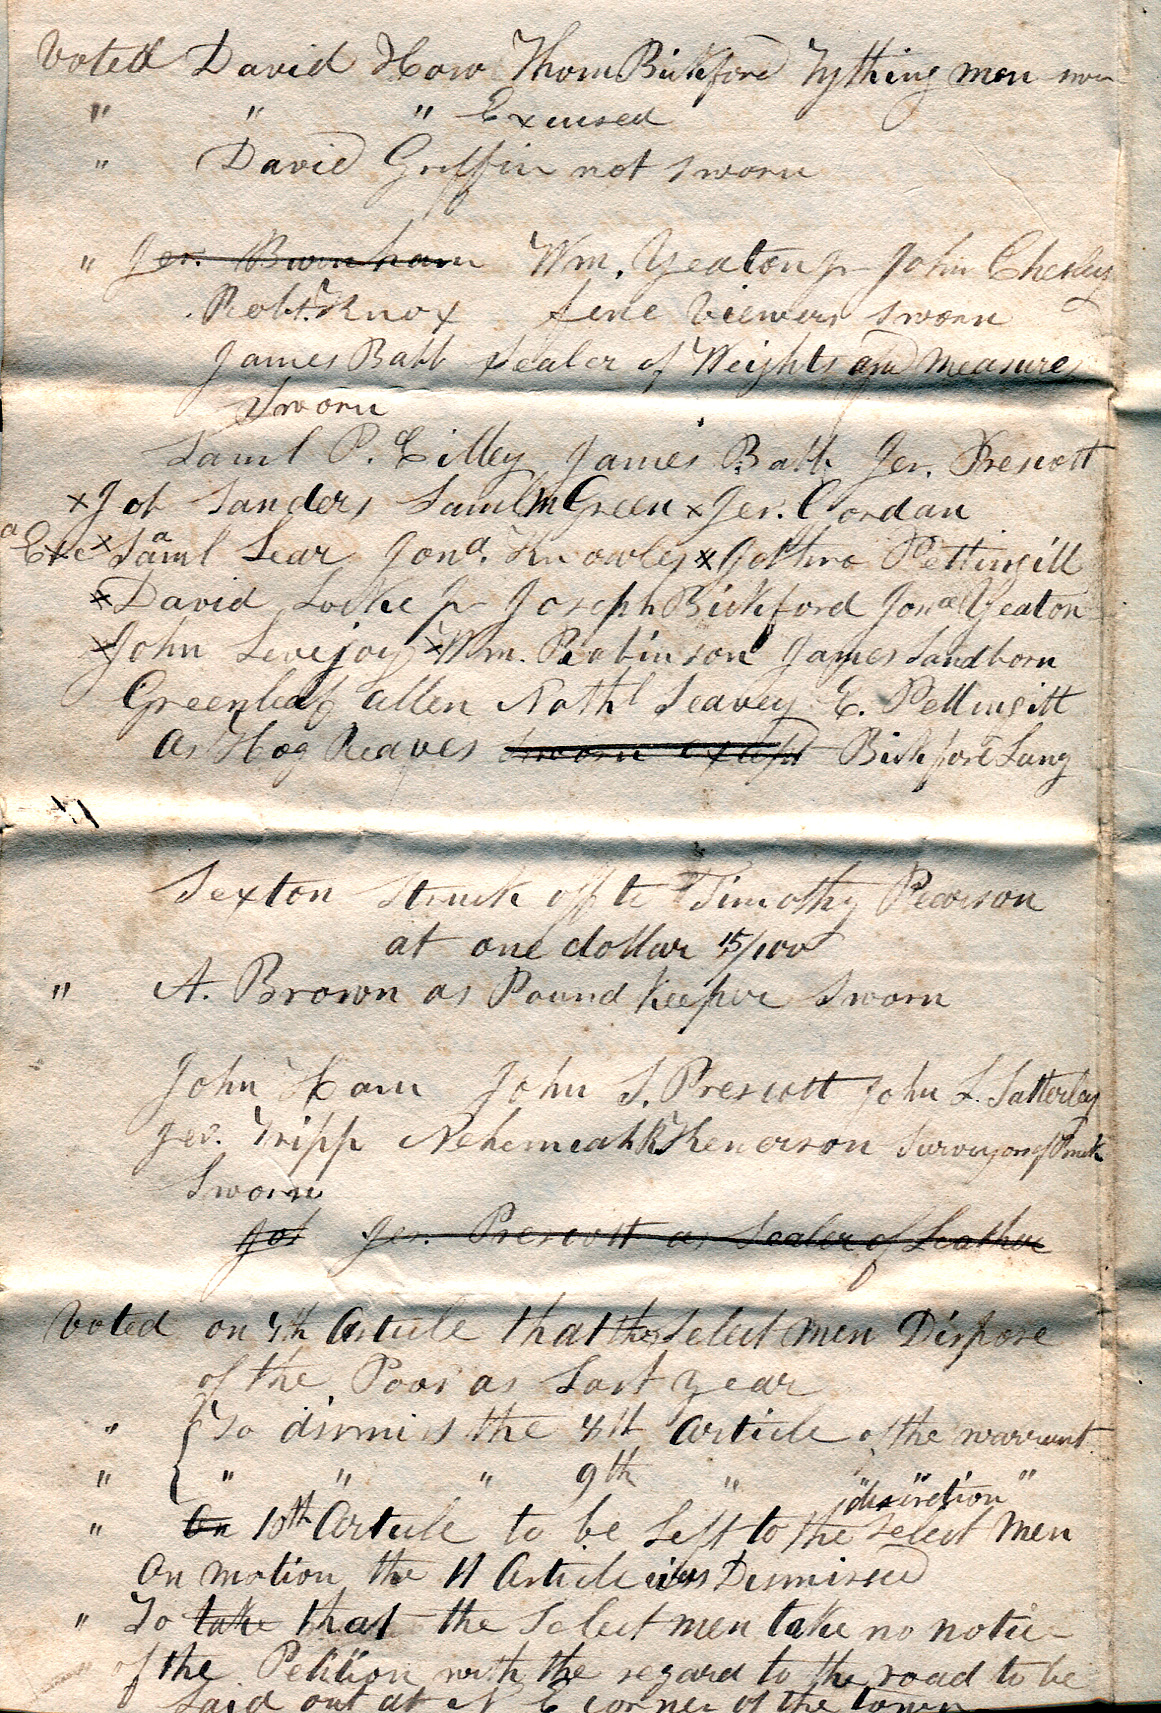 Voted David How Thom Bickford Tything men
" " " Excused
" David Griffin not sworn
" Jer. Burnham Wm. Yeaton Jr John Chesley
Robt. Knox fence viewers sworn
James Babb Sealer of Weights and measures
Sworn
Saml P. Cilley James Babb Jer. Prescott
x Job Sanders Saml M Green x Jer. Cordan
x Saml Lear Jona. Knowles x Jethro Pettingill
x David Locke Jr Joseph Bickford Jona Yeaton
x John Lovejoy x Wm. Robinson James Sandborn
Greenleaf Allen Nathl Seavey E. Pettingill
as Hog Reaves sworn except Bickford Lang
Sexton Struck off to Timothy Pearson
at one dollar 15/100
" A. Brown as Pound Keeper Sworn
John Ham John S. Prescott John L. Satterley
Jer. Tripp Nehemeah R. Kenerson Surveyors of Brick
Sworn
Job Jer. Prescott as Sealer of Leather
Voted on 7th Article that the Select men Dispose
of the Poor as Last year
" { To dismis the 8th Article of the warrant
" " " " 9th " " " "
discretion
" On 10th Article to be Left to the select men
On motion the 11 Article was Dismissed
" To take that the Select men take no notice
of the Petition with the regard to the road to be
Laid out at N E corner of the town